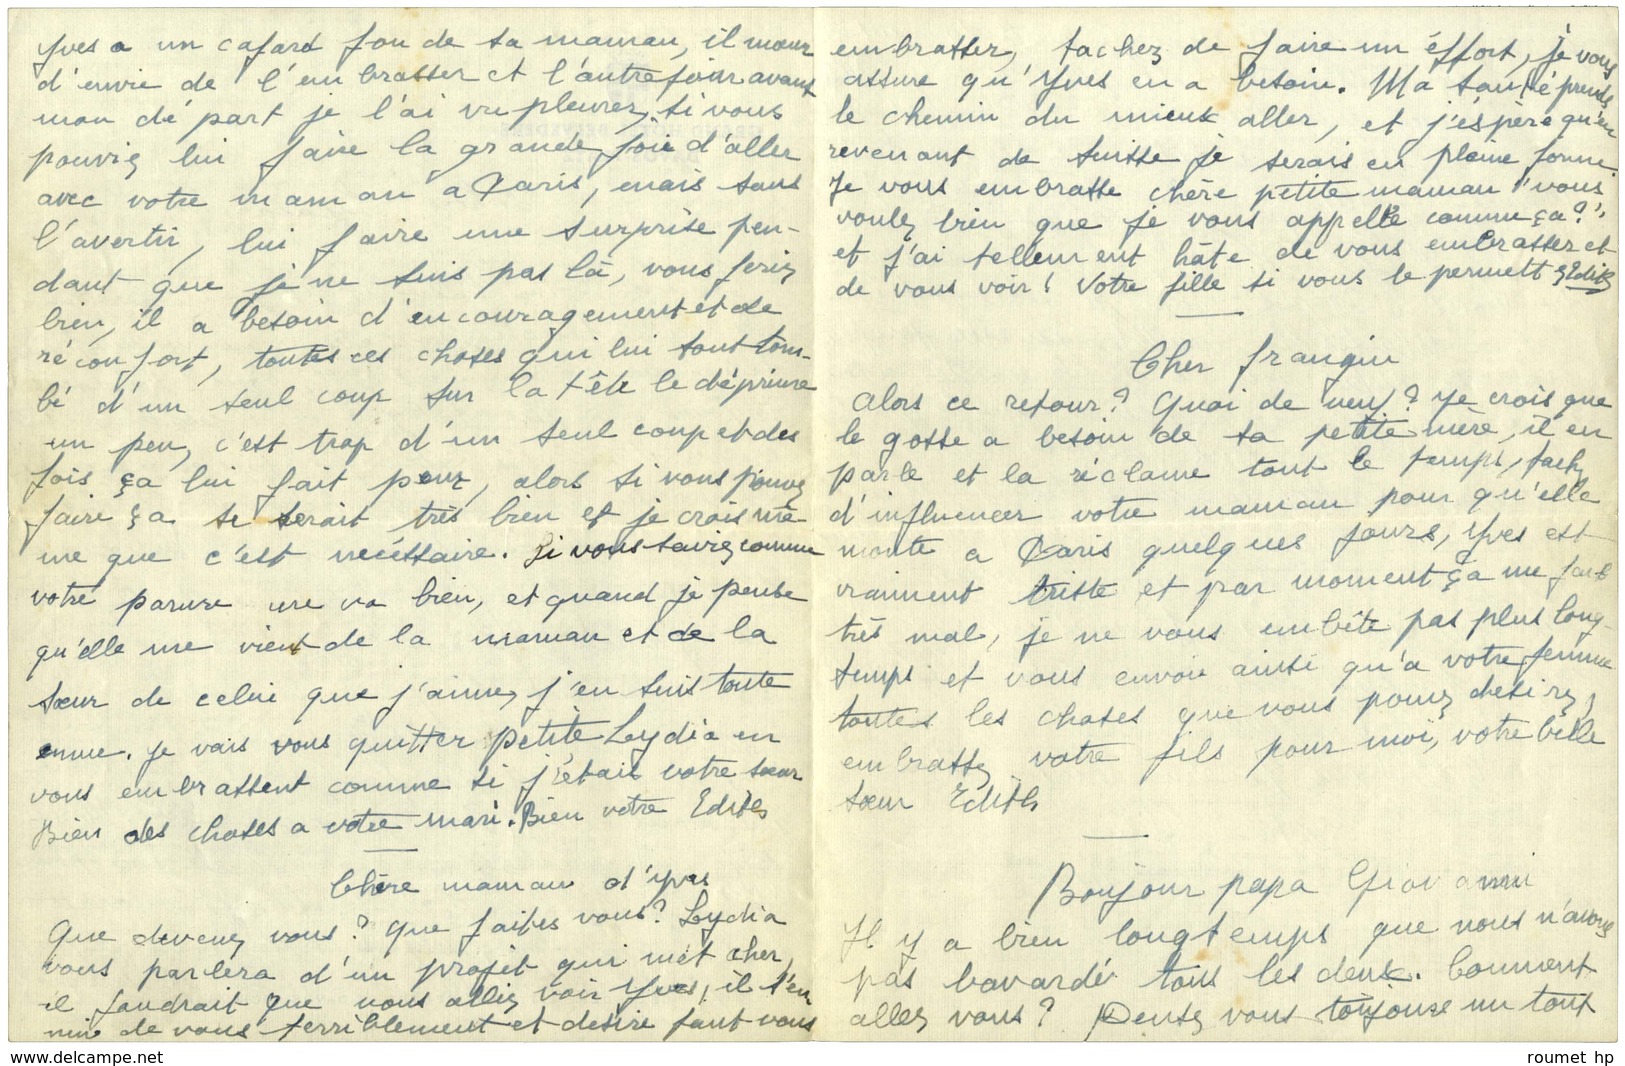 Yves a un cafard fou de sa maman, il meur
d'envie de l'embrasser et l'autre jour avant
mon départ je l'ai vu pleurez, si vous
pouviez lui faire la grande joie d'aller
avec votre maman a Paris, mais sans
l'avertir, lui faire une surprise pen-
dant que je ne suis pas là, vous feriez
bien, il a besoin d'encouragement et de
réconfort, toutes ces choses qui lui sont tom-
bé d'un seul coup sur la tête le déprime
un peu, c'est trop d'un seul coup et des
fois ça lui fait peur, alors si vous pouvez
faire ça se serait très bien et je crois mê-
me que c'est necéssaire. Si vous saviez comme
votre parure me va bien, et quand je pense
qu'elle me vient de la maman et de la
sœur de celui que j'aime, j'en suis toute
emue. Je vais vous quitter petite Lydia en
vous embrassent comme si j'étais votre sœur
Bien des choses a votre mari. Bien votre Edith
Chère maman d'Yves
Que devenez vous? Que faites vous? Lydia
vous parlera d'un projet qui m'est cher,
il faudrait que vous alliez voir Yves, il s'en
nuie de vous terriblement et desire tant vous
embrasser, tachez de faire un éffort, je vous
assure qu'Yves en a besoin. Ma santé prends
le chemin du mieux aller, et j'éspère qu'en
revenant de Suisse je serais en pleine forme
Je vous embrasse chère petite maman "vous
voulez bien que je vous appelle comme ça?",
et j'ai tellement hâte de vous embrasser et
de vous voir! Votre fille si vous le permettez Edith
Cher frangin
Alors ce retour? Quoi de neuf? Je crois que
le gosse a besoin de sa petite mère, il en
parle et la réclame tout le temps, tachez
d'influencer votre maman pour qu'elle
monte a Paris quelques jours, Yves est
vraiment triste et par moment ça me fait
très mal, je ne vous embête pas plus long-
temps et vous envoie ainsi qu'a votre femme
toutes les choses que vous pouvez desirez,
embrassez votre fils pour moi, votre belle
sœur Edith
Bonjour papa Giovanni
Il y a bien longtemps que nous n'avons
pas bavardé tous les deux. Comment
allez vous? Pensez vous toujours un tout
roumet hp